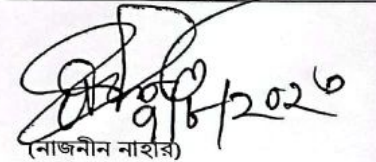 ৭/৮/২০২৩
(নাজনীন নাহার)